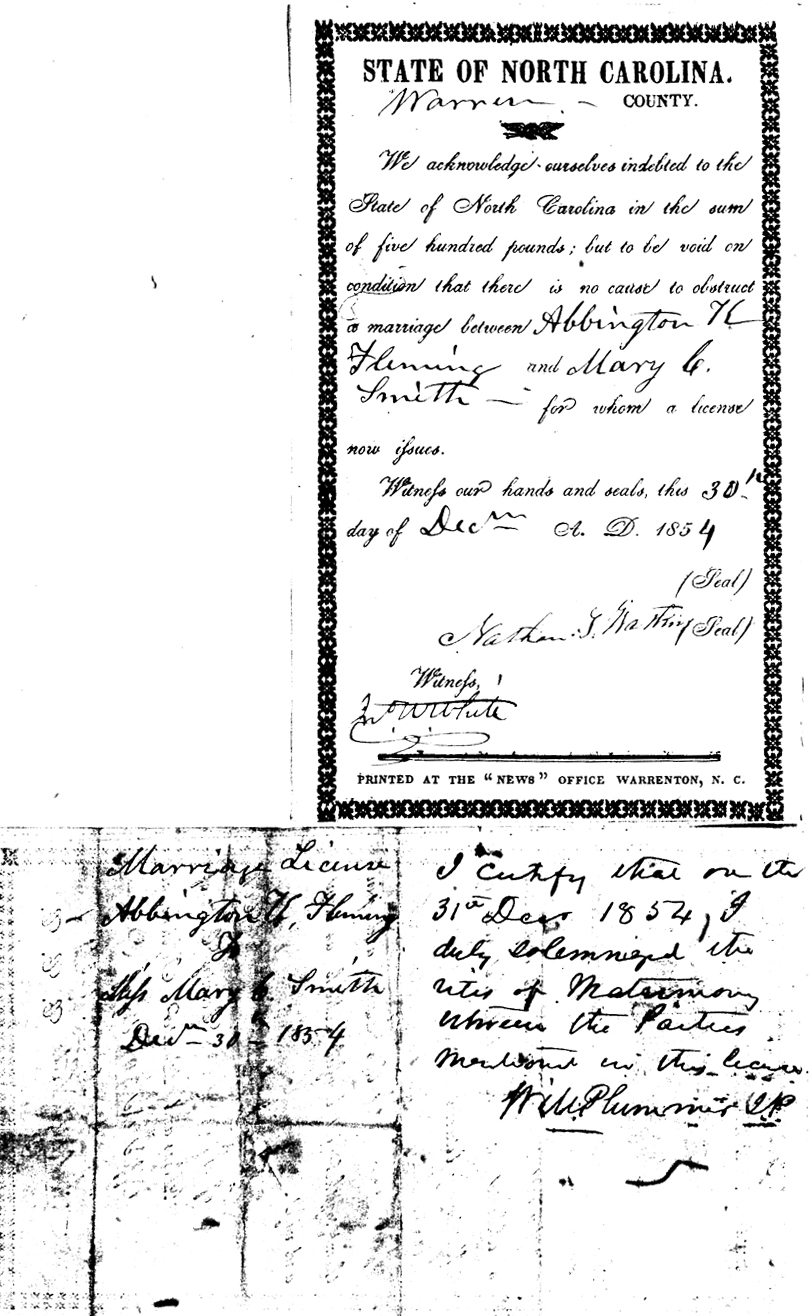 STATE OF NORTH CAROLINA.
Warren COUNTY.
We acknowledge ourselves indebted to the
State of North Carolina in the sum
of five hundred pounds; but to be void on
condition that there is no cause to obstruct
a marriage between Abbington K
Fleming and Mary C.
Smith — for whom a license
now issues.
Witness our hands and seals, this 30th
day of Decm A. D. 1854
(Seal)
Nathan (Seal)
Witness,
White
PRINTED AT THE "NEWS" OFFICE WARRENTON, N. C.
Marriage License
Abbington K, Fleming
To
Miss Mary C Smith
Decm 30 1854
I certify that on the
31st Decr 1854, I
duly solemnized the
rites of Matrimony
between the Parties
mentioned in this license
Will Plummer JP